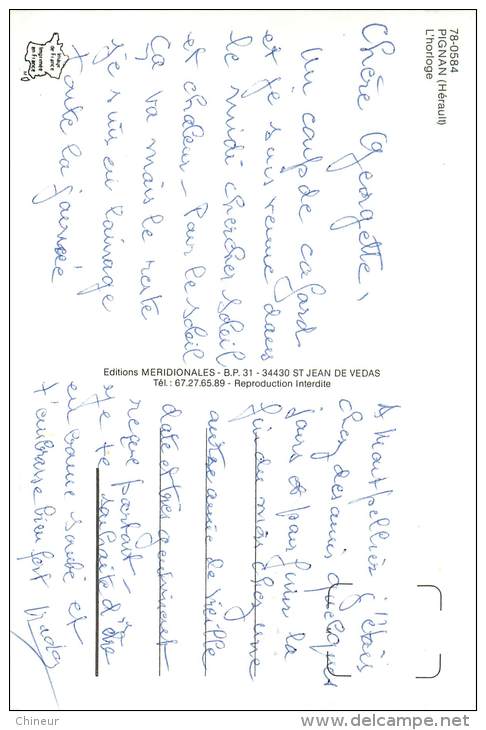 78-0584
PIGNAN (Hérault)
L'horloge
Chère Georgette,
Un coup de cafard
et je suis venue dans
le midi chercher soleil
et chaleur - Pour le soleil
Ça va mais le reste
je suis en lainage
toute la journée
Imprimée
en France
Editions MERIDIONALES - B.P. 31 - 34430 ST JEAN DE VEDAS
Tél.: 67.27.65.89 - Reproduction Interdite
A Montpellier j'étais
chez des amis quelques
jours et pour finir la
fin du mois chez une
autre amie de vieille
date et très gentiment
reçue partout -
Je te souhaite d'être
en bonne santé et
t'embrasse bien fort
Chineur
www.delcampe.net